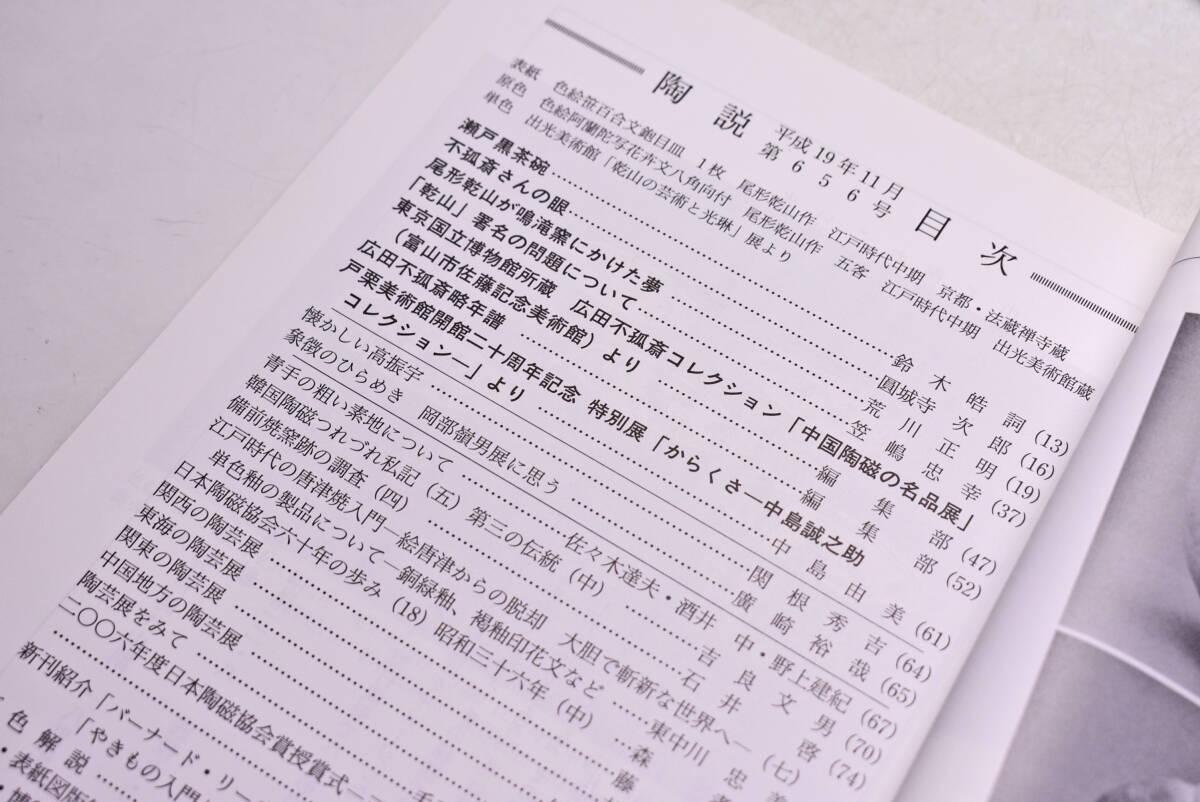 陶説 平成19年11月 第656号 目次
表紙 色絵笹百合文鉋目皿 1枚 尾形乾山作 江戸時代中期 京都・法蔵禅寺蔵
原色 色絵阿蘭陀写花卉文八角向付 尾形乾山作 五客 江戸時代中期 出光美術館蔵
単色 出光美術館「乾山の芸術と光琳」展より
瀬戸黒茶碗……鈴木皓詞(13)
不孤斎さんの眼……圓城寺次郎(16)
尾形乾山が鳴滝窯にかけた夢……荒川正明(19)
「乾山」署名の問題について……笠嶋忠幸(37)
東京国立博物館所蔵 広田不孤斎コレクション「中国陶磁の名品展」
(富山市佐藤記念美術館)より……編集部(47)
広田不孤斎略年譜……編集部(52)
戸栗美術館開館二十周年記念 特別展「からくさ―中島誠之助
コレクション―」より……中島由美(61)
懐かしい高振宇……関根秀吉(64)
象徴のひらめき 岡部嶺男展に思う……廣崎裕哉(65)
青手の粗い素地について……佐々木達夫・酒井中・野上建紀(67)
韓国陶磁つれづれ私記(五)第三の伝統(中)……吉良文男(70)
備前焼窯跡の調査(四)……石井啓(74)
江戸時代の唐津焼入門―絵唐津からの脱却 大胆で斬新な世界へ―(七)
単色釉の製品について―銅緑釉、褐釉印花文など……東中川忠美
日本陶磁協会六十年の歩み(18)昭和三十六年(中)……森
関西の陶芸展……藤
東海の陶芸展
関東の陶芸展
中国地方の陶芸展
陶芸展をみて
二〇〇六年度日本陶磁協会賞授賞式
新刊紹介「バーナード・リー
「やきもの入門
色解説
・表紙図版